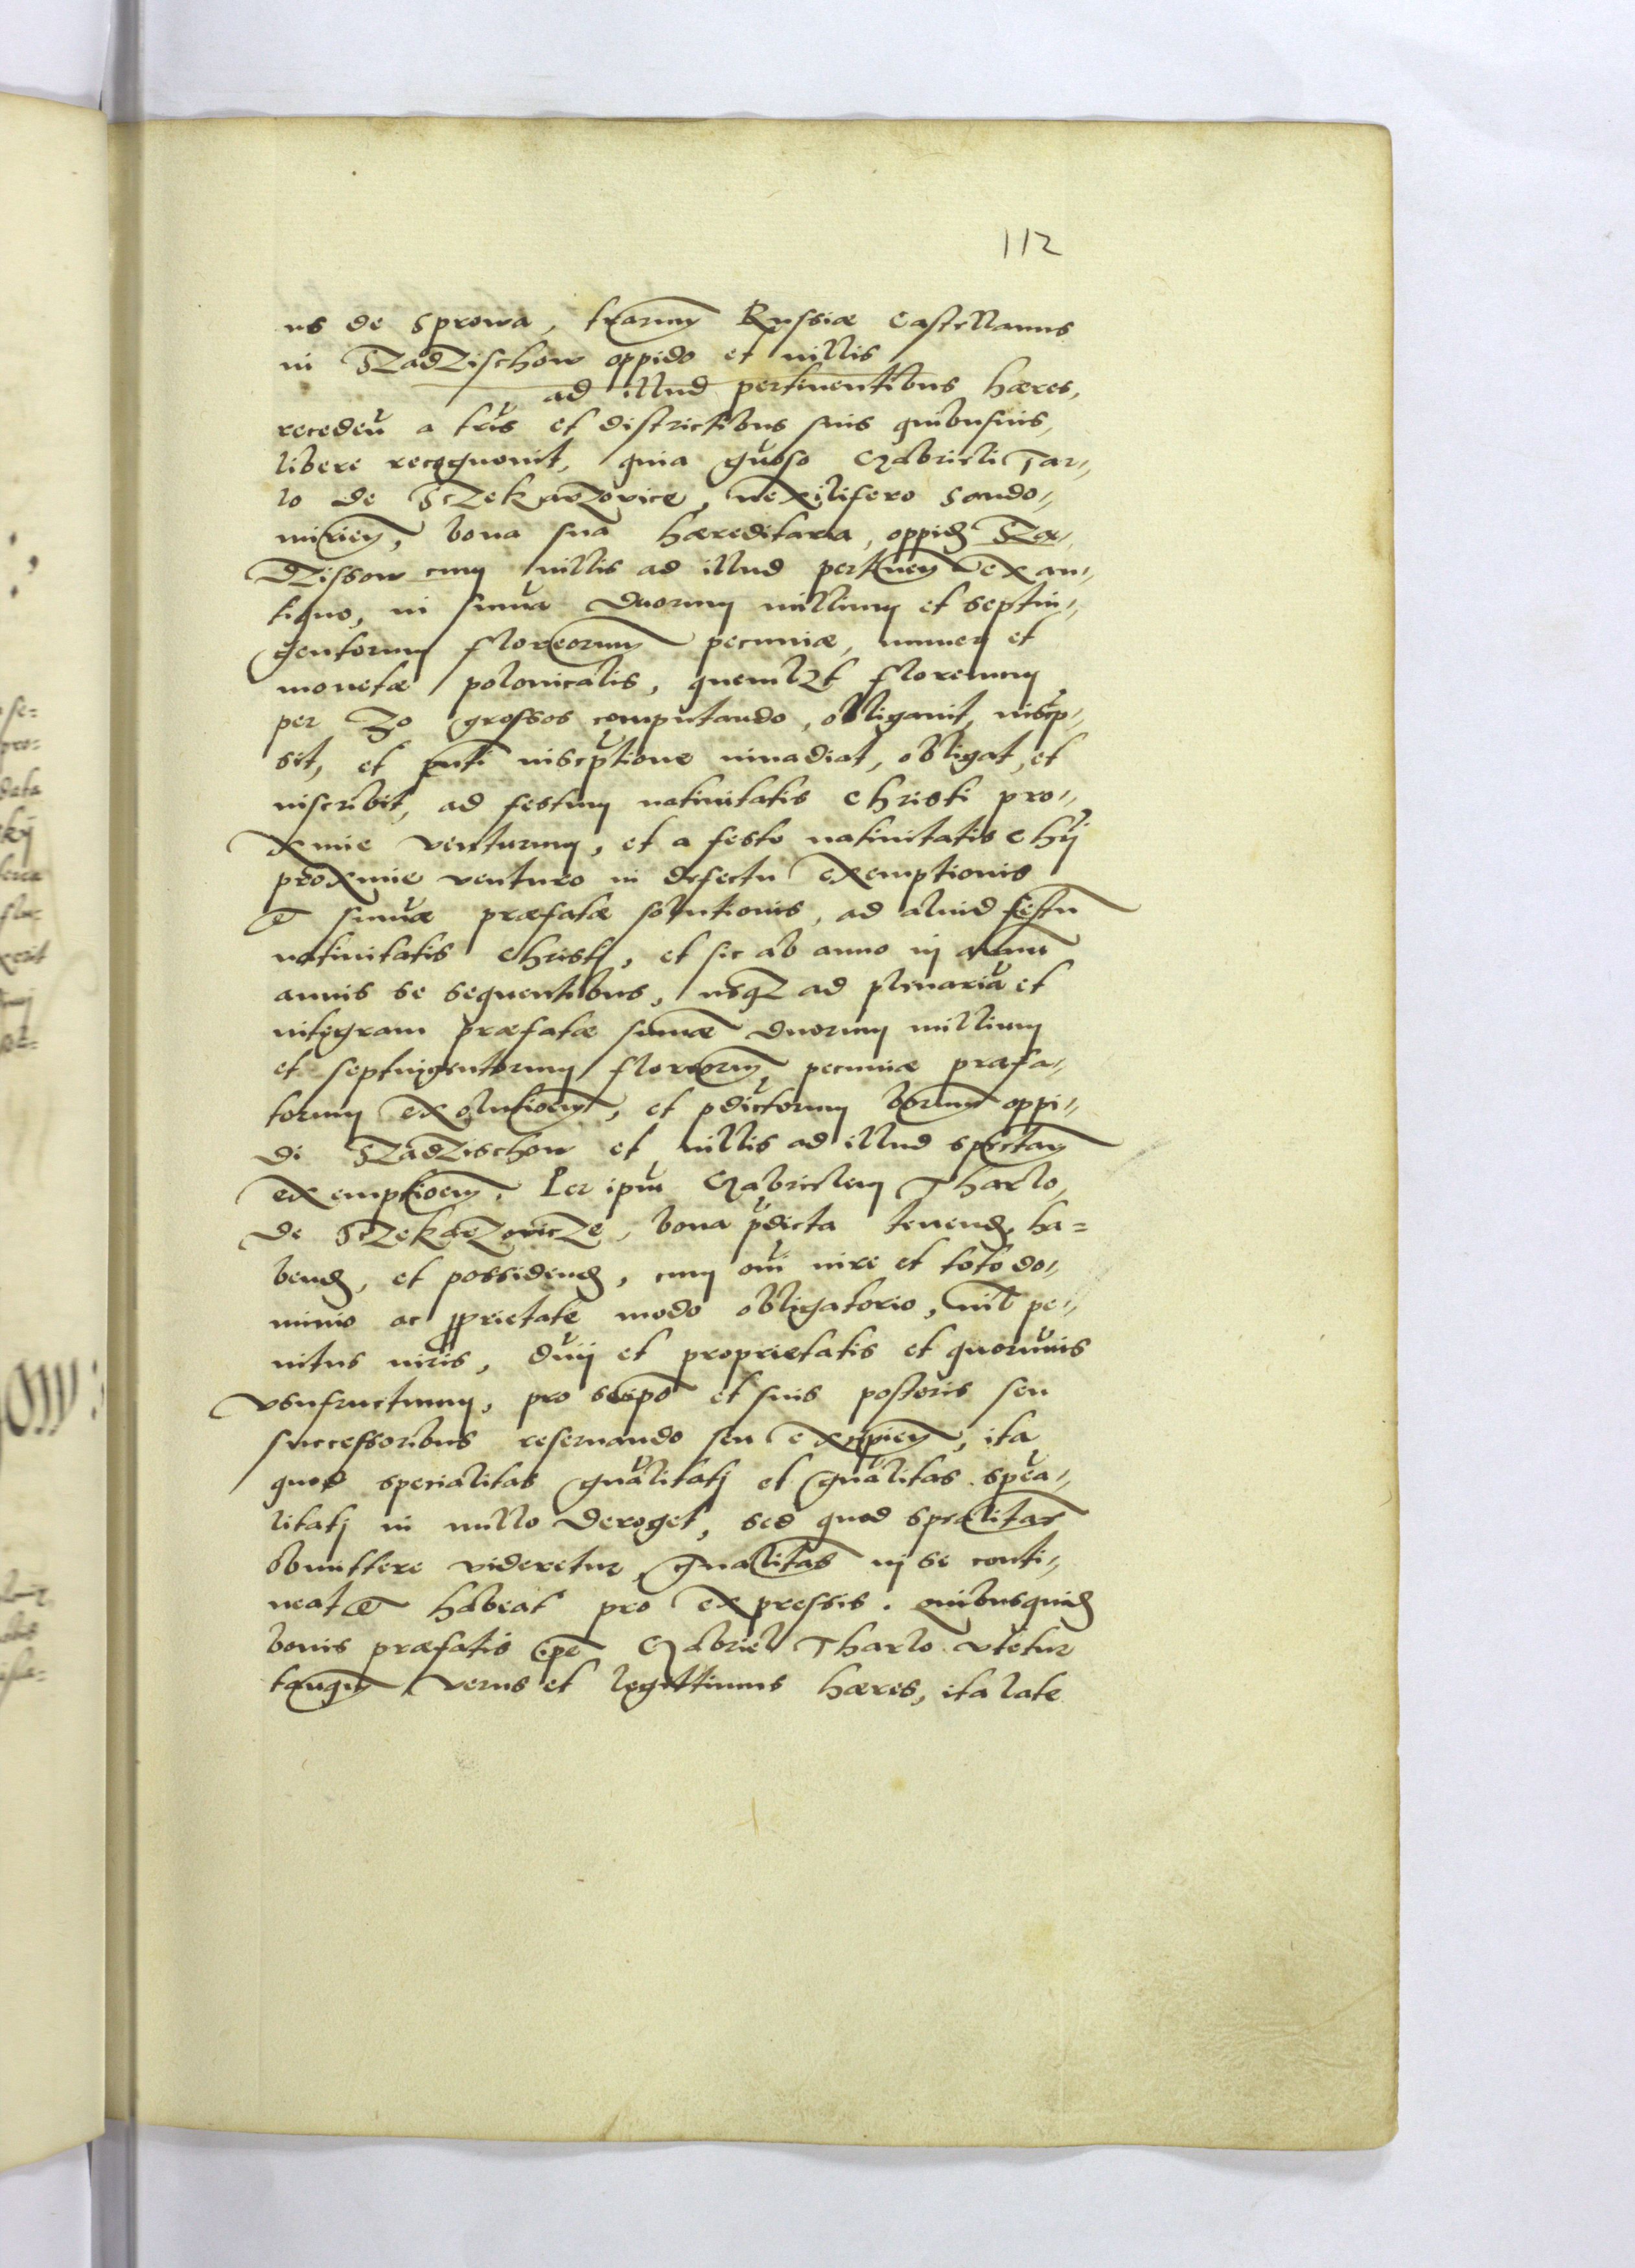 112
us de Sprowa, trarum Russiæ Castellanus
in Szadzischow oppido et uillis
ad illud pertinentibus hæres,
receden a tris et districtibus suis quibusuis,
libere recognouit, quia gnoso Gabrieli Tar=
lo de Sczekarzovice, uexilifero Sando=
mirien, bona sua hæreditaria, oppid Sza=
dzissow cum uillis ad illud pertinen ex an=
tiquo, in suma duorum millium et septin=
gentorum floreorum pecuniæ, numeri et
monetæ polonicalis, quemlzt florenum
per 30 grossos computando, obligauit, inscrip=
sit, et pnti inscriptione inuadiat, obligat, et
inscribit, ad festum natiuitatis Christi pro=
xime venturum, et a festo natiuitatis Chri
proxime venturo in defectu exemptionis
et sumæ præfatæ solutionis, ad aliud festu
natiuitatis Christi, et sic ab anno in annu
annis se sequentibus, usqz ad plenaria et
integram præfatæ sumæ duorum millium
et septingentorum floreorum, pecuniæ præfa=
torum exolutioem, et pdictorum borum oppi=
di Szadzischow et uillis ad illud spectan
exemptioem. Per ipm Gabrielem Tharlo,
de Sczekarzovicze, bona pdicta tenend, ha=
bend, et possidend, cum oni iure et toto do=
minio ac pprietate modo obligatorio, nil pe=
nitus iuris, dnii et proprietatis et quoruuis
vsufructuum, pro seipo et suis posteris seu
successoribus reseruando seu excipien, ita
quod specialitas gnalitati et gnalitas specia=
litati in nullo deroget, sed quod spealitas
obmittere videretur, gnalitas in se conti=
neat et habeat pro expressis. Quibusquid
bonis præfatis ipe Gabriel Tharlo vtetur
tanqm verus et legittimus hæres, ita late